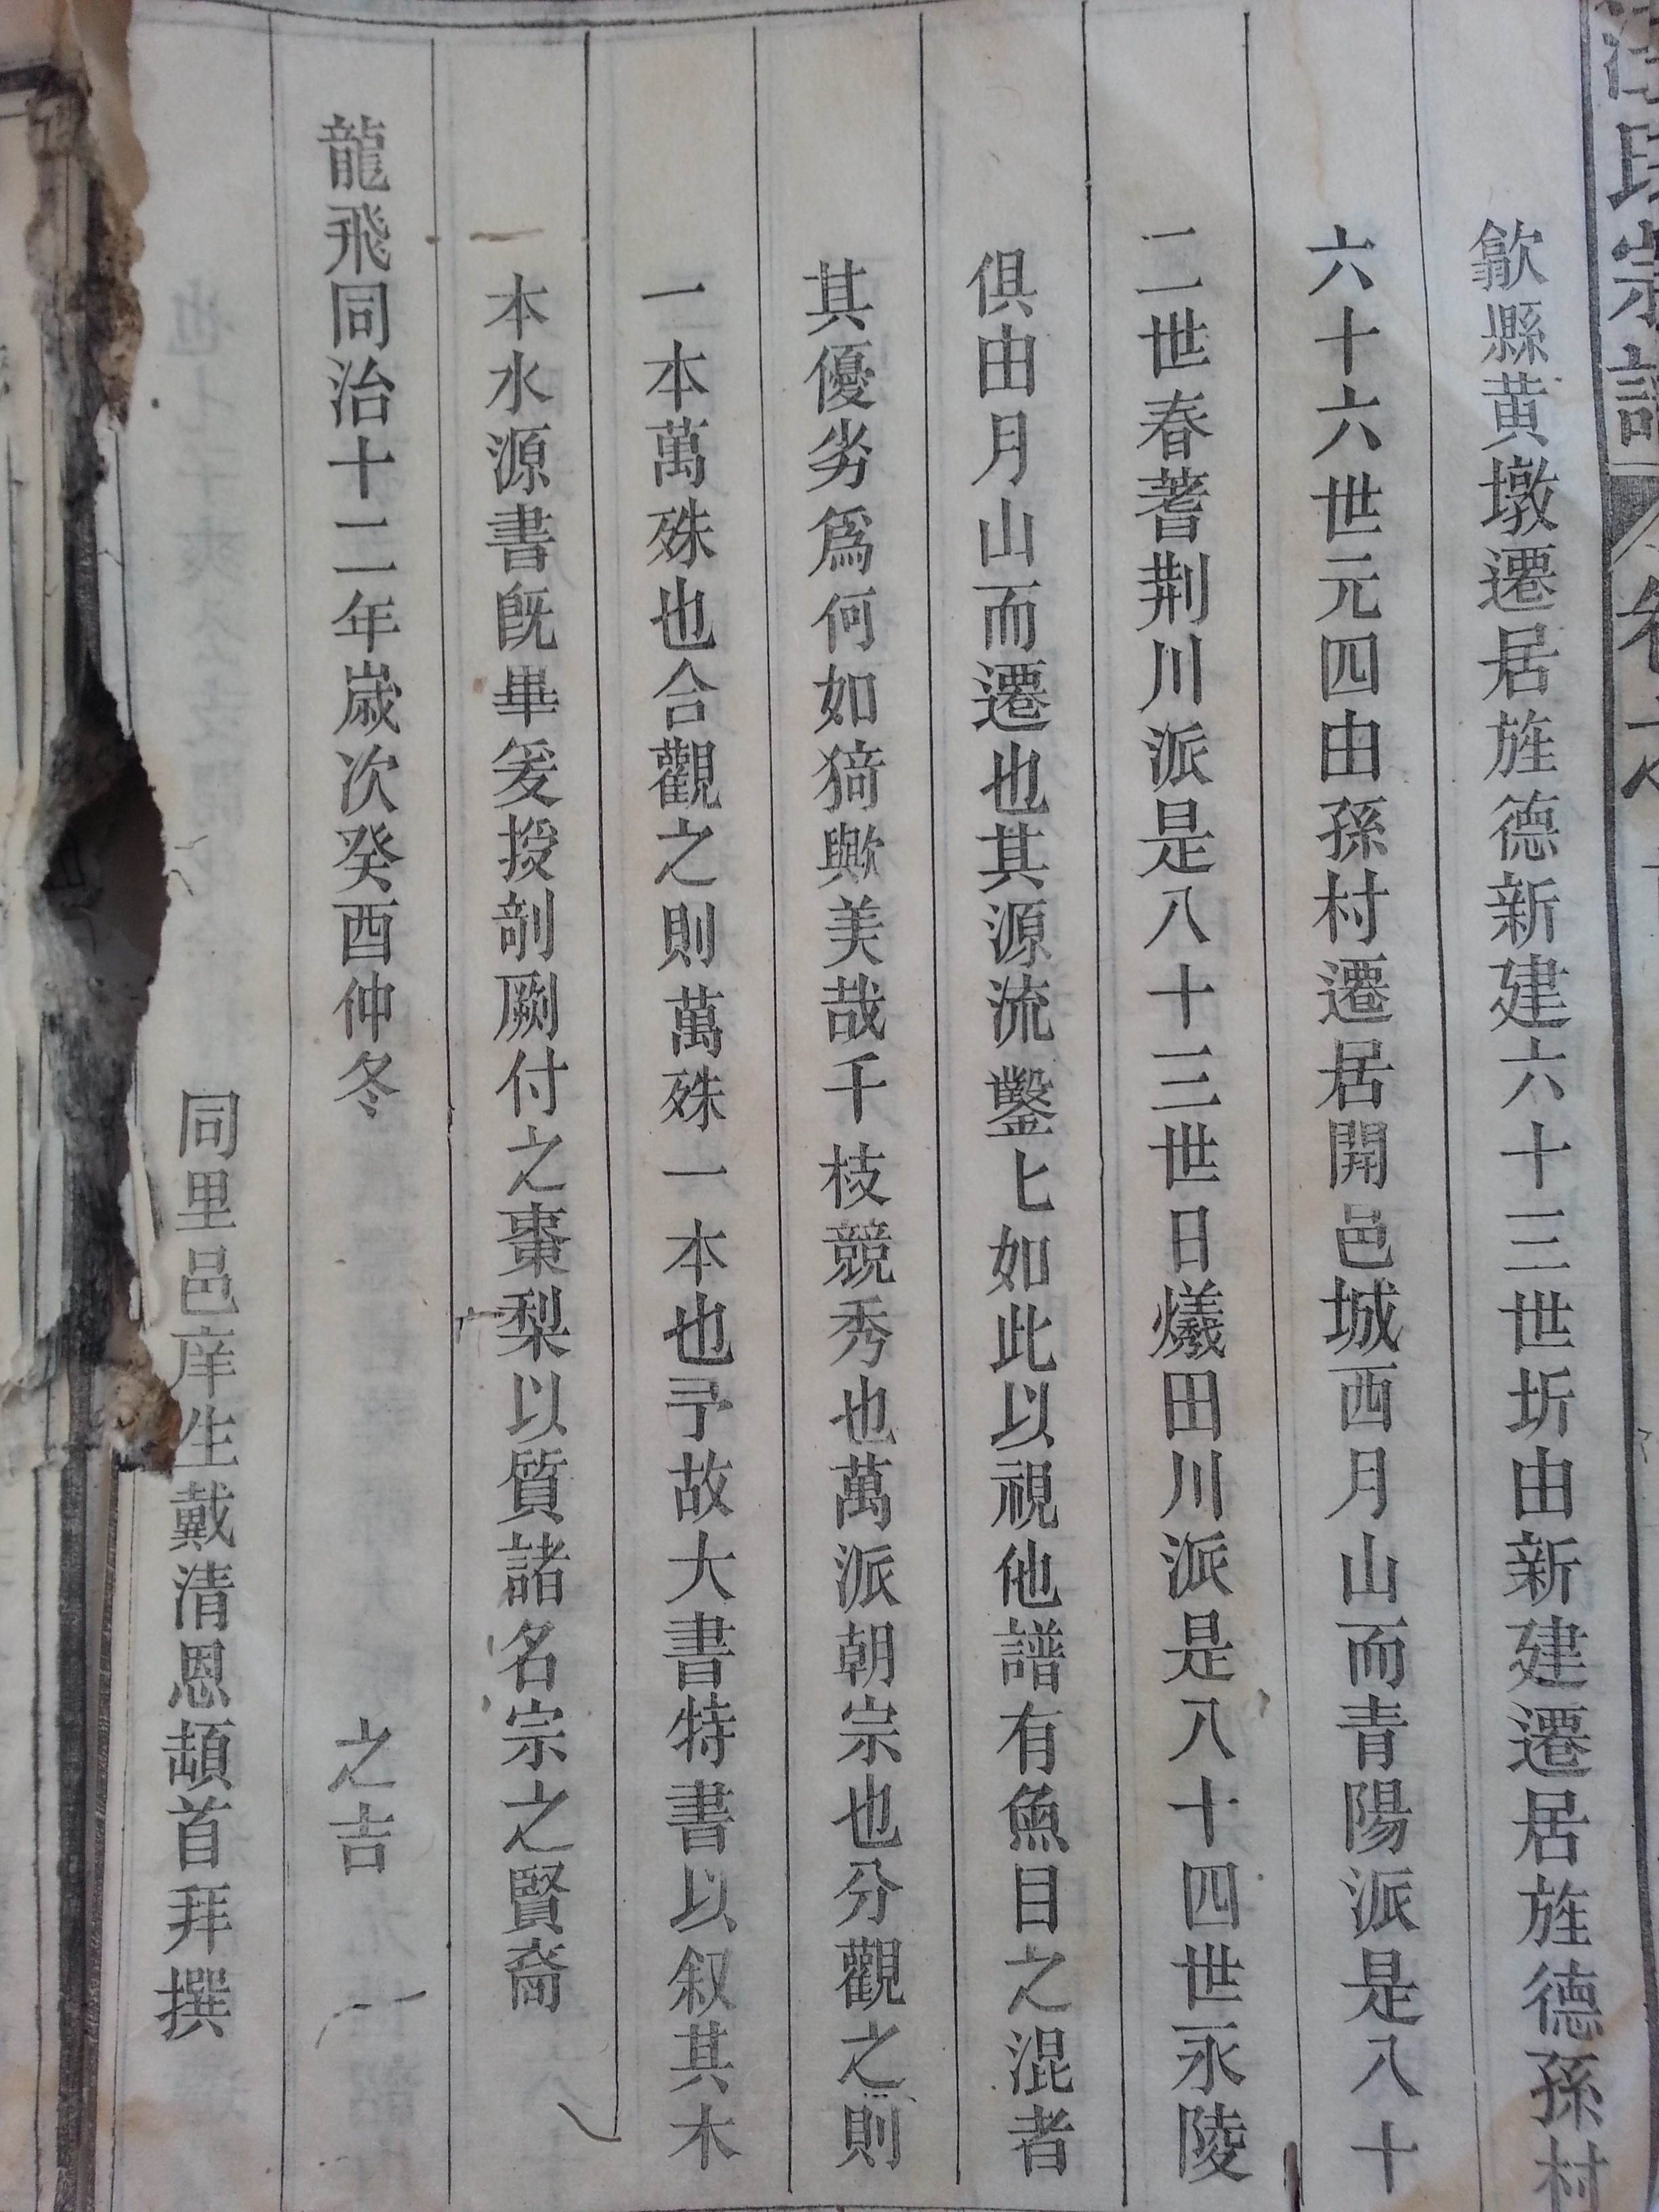 氏宗譜
歙縣黄墩遷居旌德新建六十三世圻由新建遷居旌德孫村
六十六世元四由孫村遷居開邑城西月山而青陽派是八十
二世春蓍荆川派是八十三世日爔田川派是八十四世永陵
俱由月山而遷也其源流鑿匕如此以視他譜有魚目之混者
其優劣爲何如猗歟美哉千枝競秀也萬派朝宗也分觀之則
一本萬殊也合觀之則萬殊一本也予故大書特書以叙其木
本水源書旣畢爰授剞劂付之棗梨以質諸名宗之賢裔
龍飛同治十二年嵗次癸酉仲冬　之吉
同里邑庠生戴清恩頓首拜撰